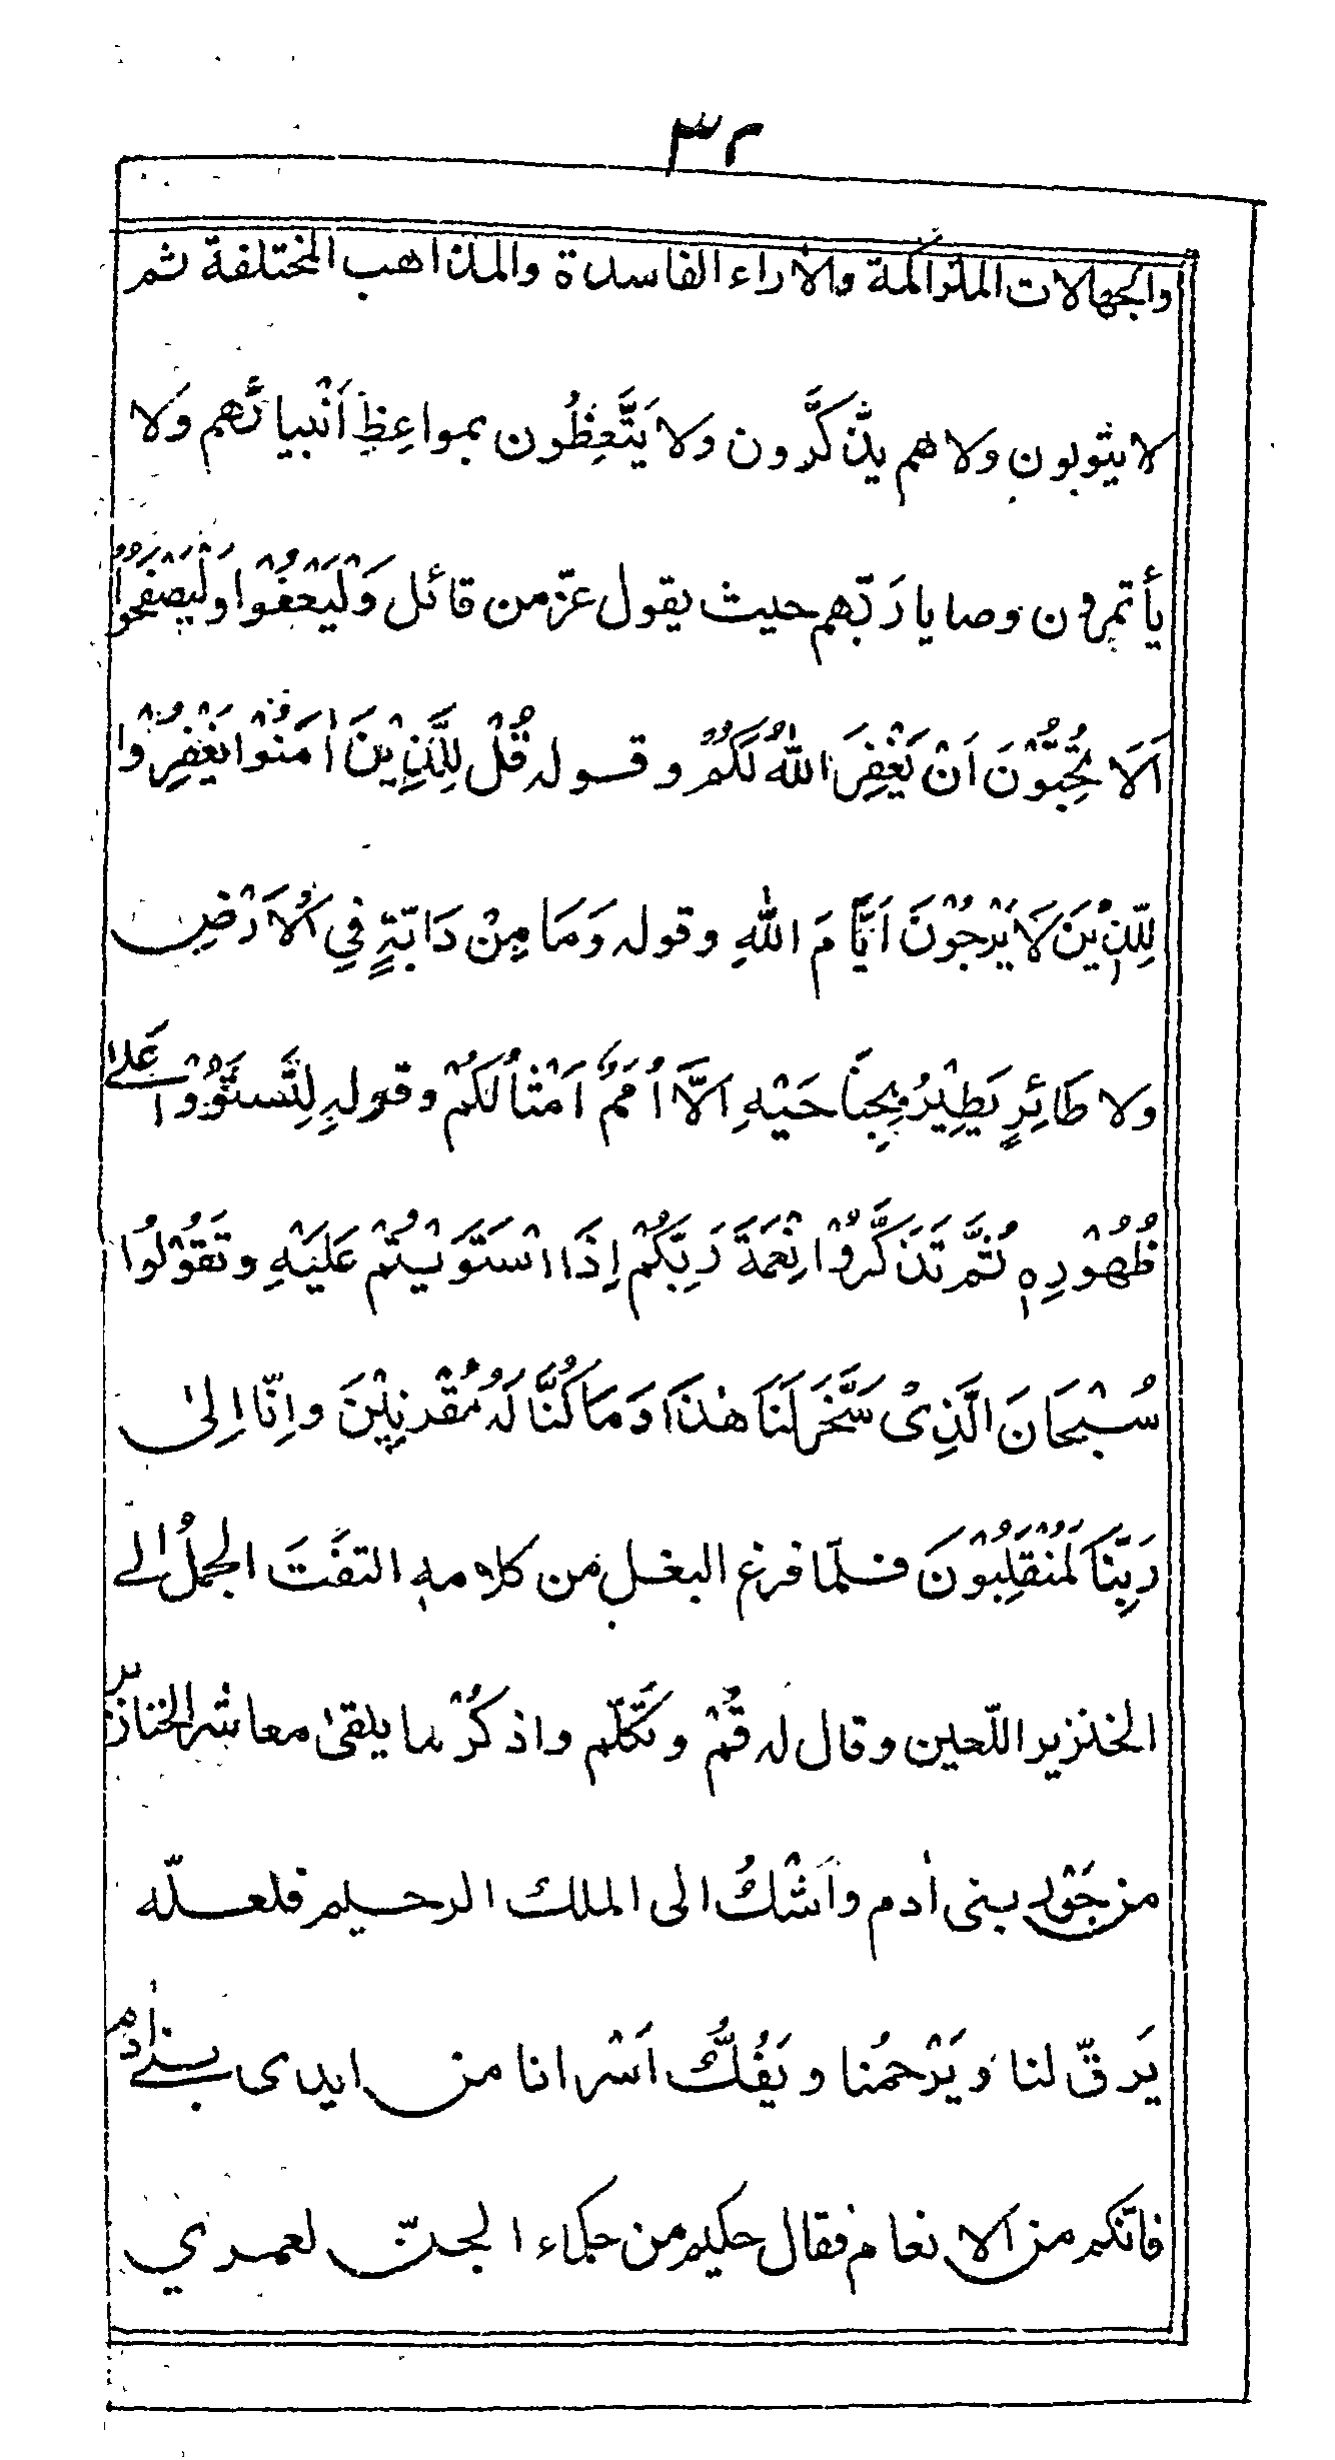 ٣٢
والجهالات المتراكمة والأراء الفاسدة والمذاهب المختلفة ثم
لا يتوبون ولا هم يذَّكَّرون ولا يَتَّعِظُون بمواعِظِ اَنْبيائهم ولا
يأتمرون وصايا رَبّهم حيث يقول عزّ من قائل وَلْيَعْفُوْا وَلْيَصْفَحُوْا
اَلَا تُحِبُّوْنَ اَنْ يَّغْفِرَ اللّٰهُ لَكُمْ وقوله قُلْ لِلَّذِيْنَ اٰمَنُوْا يَغْفِرُوْا
لِلَّذِيْنَ لَا يَرْجُوْنَ اَيَّامَ اللّٰهِ وقوله وَمَا مِنْ دَابَّةٍ فِي الْاَرْضِ
ولا طَائِرٍ يَطِيْرُ بِجَنَاحَيْهِ اِلَّا اُمَمٌ اَمْثَالُكُمْ وقولهِ لِتَسْتَوُوْا عَلىٰ
ظُهُوْرِهٖ ثُمَّ تَذَكَّرُوْا نِعْمَةَ رَبِّكُمْ اِذَا اسْتَوَيْتُمْ عَلَيْهِ وتَقُوْلُوْا
سُبْحَانَ الَّذِىْ سَخَّرَ لَنَا هٰذَا وَمَا كُنَّا لَهُ مُقْرِنِيْنَ وَاِنّا اِلىٰ
رَبِّنَا لَمُنْقَلِبُوْنَ فلمّا فرغ البغل من كلامهٖ التفَتَ الجملُ الى
الخنزير اللّعين وقال له قُمْ وتَكلّم واذكُرْ ما يلقىٰ معاشر الخنازير
من جَوْر بنى اٰدم واَشْكُ الى الملك الرحيم فلعلّه
يَرقّ لنا ويَرْحمُنا ويَفُكُّ اَسْرانا من ايدى بنى اٰدم
فانّكم من الانعام فقال حكيم من حكماء الجنّ لعمري